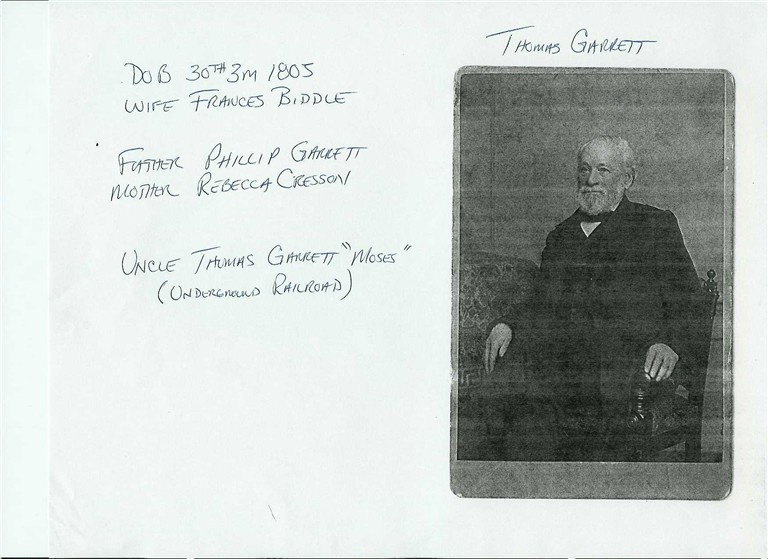 Thomas Garrett
DOB 30TH 3M 1805
Wife Frances Biddle
Father Phillip Garrett
Mother Rebecca Cresson
Uncle Thomas Garrett "Moses"
(Underground Railroad)